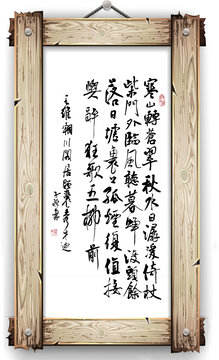 寒山轉蒼翠秋水日潺湲倚杖
柴門外臨風聽暮蟬渡頭餘
落日墟裏上孤煙復值接
輿醉狂歌五柳前
王維輞川閑居贈裴秀才迪